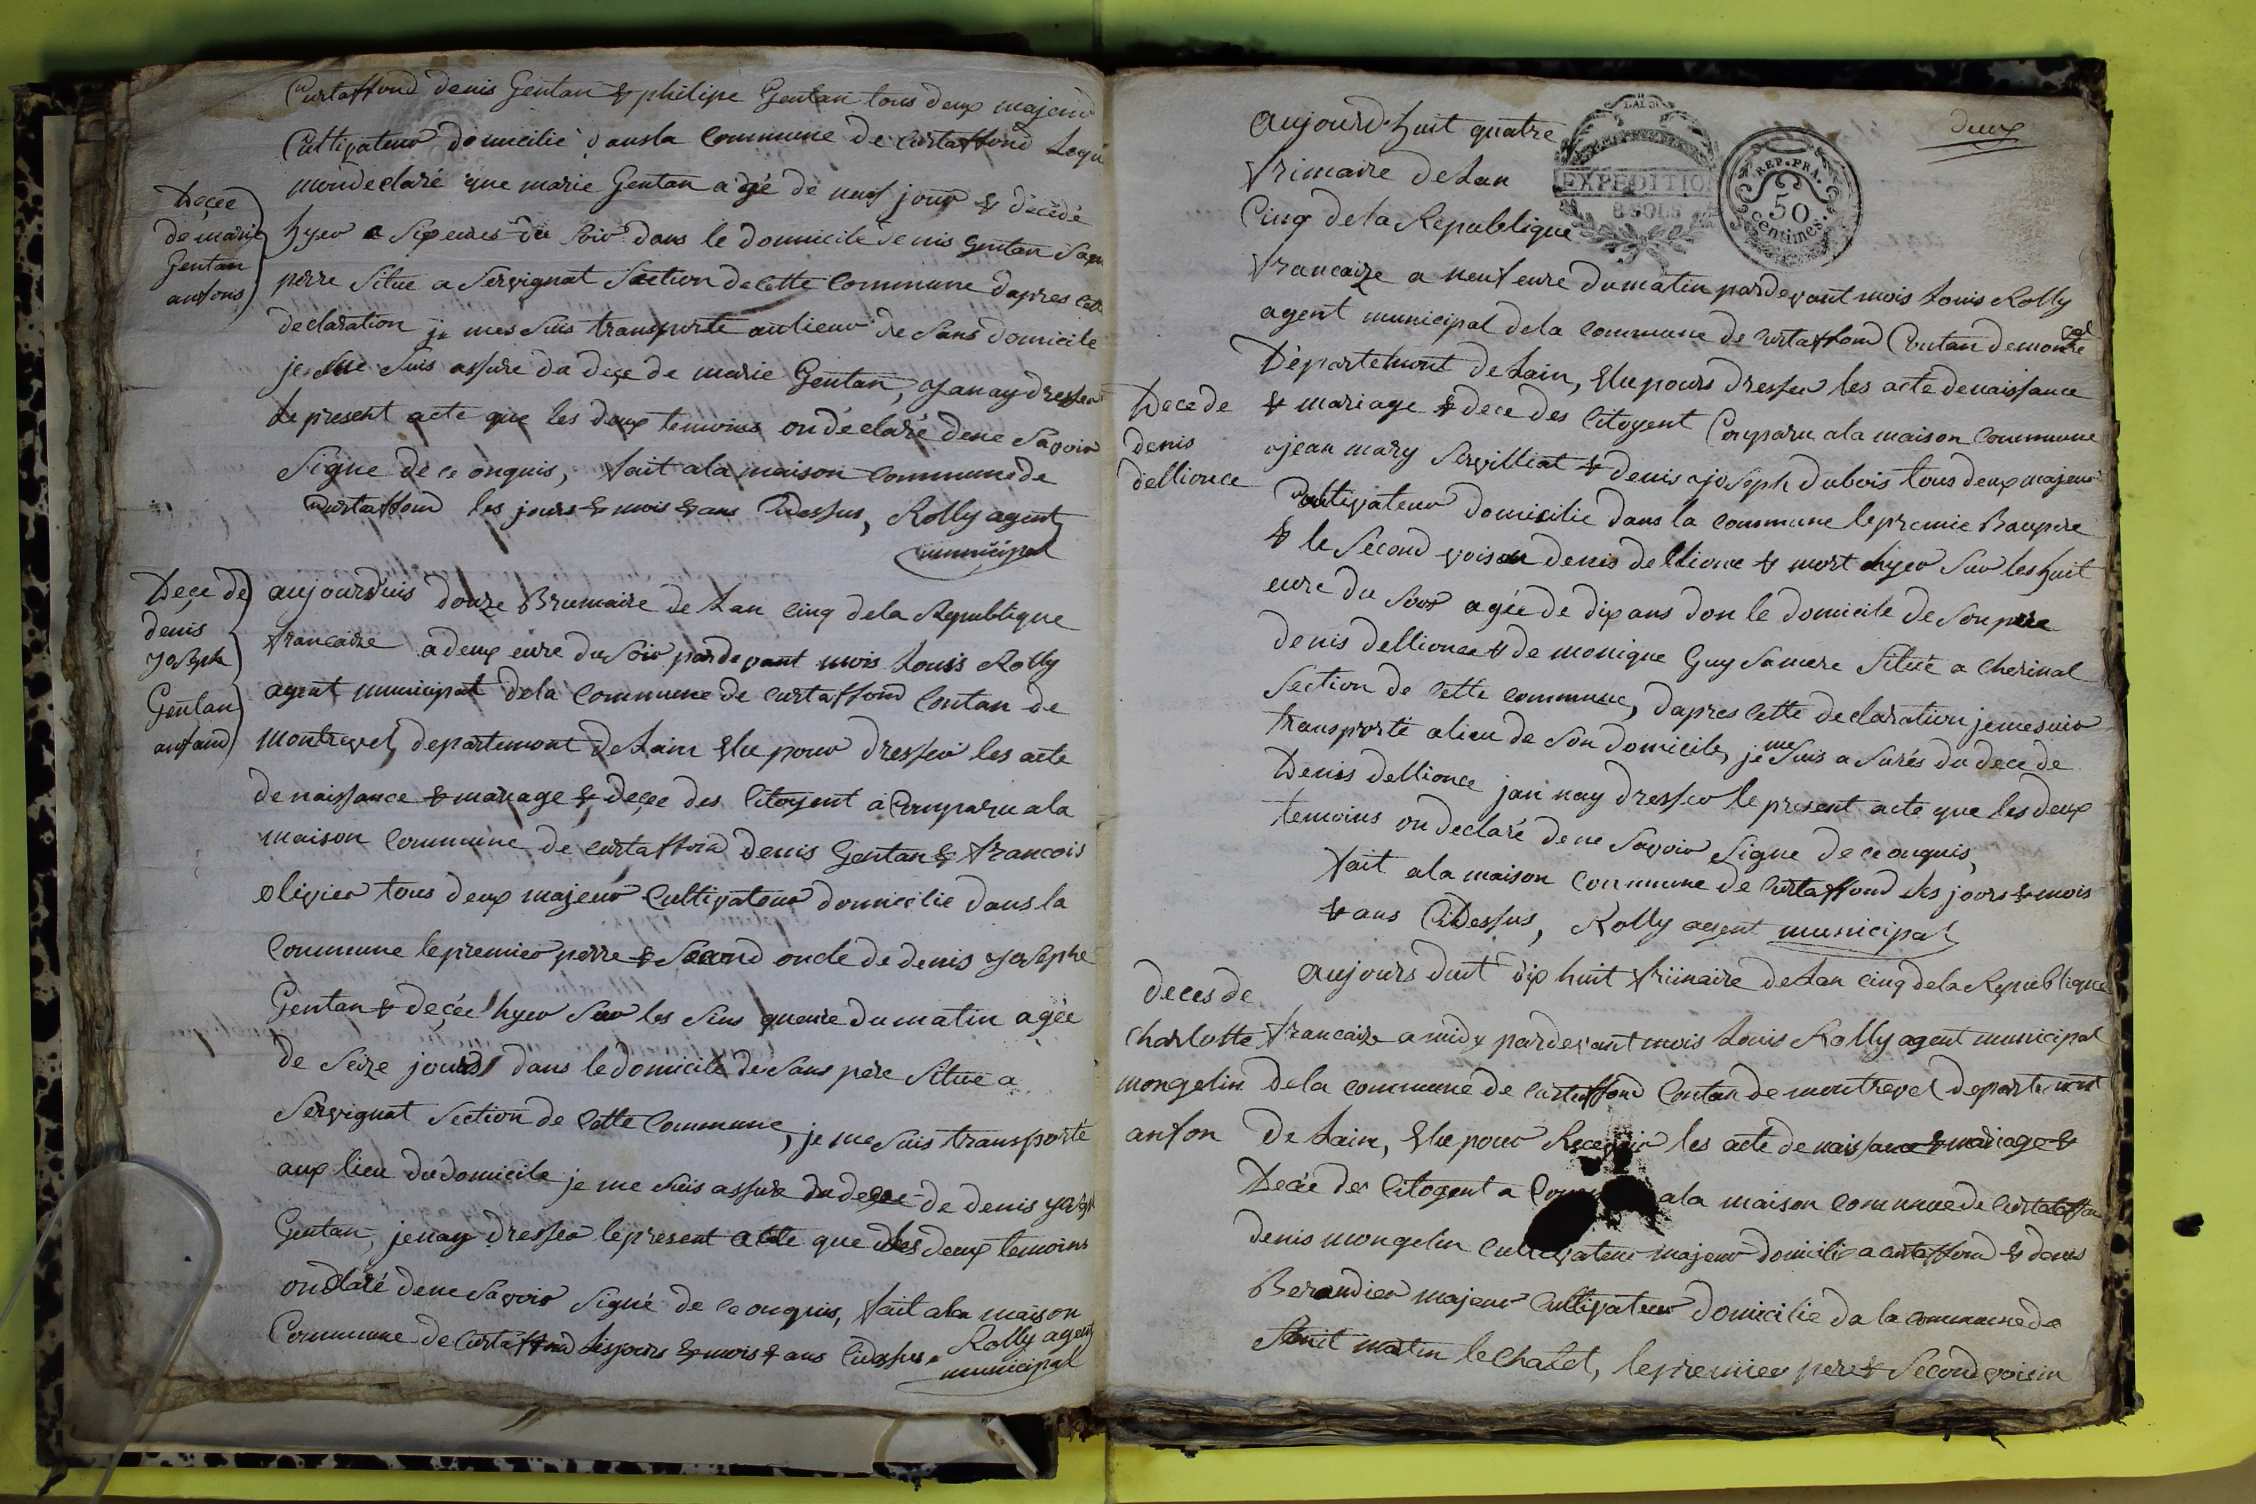 Curtaffond denis Gentan & philipe Gentan tous deux majeur
Cultivateur domicilié dans la commune de Curtaffond
mon declaré que marie Gentan agé de neuf jour & décédé
hyer a six eures du soir dans le domicile denis Gentan
perre situe a Servignat Section de cette Commune dapres
declaration je mes suis transporté au lieux de sans domicile
je me suis assure du deçe de marie Gentan, dresser
le present acte que les deux temoins on déclaré de ne savoir
signe de ce onquis, fait a la maison commune de
Curtaffond les jours & mois & ans Cidessus, Rolly agent
municipal
Deçee
de marie
Gentan
anfons
Deçe de
denis
yoseph
Gentan
anfand
aujourduis douze Brumaire de Lan cinq de la Republique
francaize a deux eure du soir pardevant mois Louis Rolly
agent municipal de la commune de curtaffond Contan de
montrevel, departemont de Lain Elu pour dresser les acte
de naissance & mariage & deçee des Citoyent a Comparu a la
maison commune de curtaffond denis Gentan & francois
olivier tous deux majeur Cultivateur domicilie dans la
Commune le premier perre & Second oncle de denis yosephe
Gentan & deçée hyer sur les sins queure du matin agée
de Seize jours dans le domicile de sans pere situé a
Servignat Section de Cette Commune, je me suis transporte
aux lieu du domicile je me suis assure du deçee de denis
Gentan, jenay dresser le present acte que les deux temoins
on dclaré de ne savoir signé de ce onquis, fait a la maison
Commune de Curtaffond les jours & mois & ans Cidessus. Rolly agent
municipal
deux
EXPEDITION
8 SOLS
REP. FRA.
50
centimes.
aujourd.huit quatre
frimaire de Lan
Cinq de la Republique
francaize a neuf eure du matin pardevant mois Louis Rolly
agent municipal de la commune de Curtaffond Contan de
Départemont de Lain, Elu pours dresser les acte de naissance
& mariage & dece des Citoyent Comparu a la maison commune
jean mary Servilliat & denis joseph dubois tous deux majeur
Cultivateur domicilie dans la commune le premie Baupere
& le Second voisin denis dellionce & mort hyer sur les huit
eure du soir agée de dix ans don le domicile de Son pere
denis dellionce & de monique Guy Samere situé a cherinal
Section de Cette commune, dapres Cette declaration je me suis
transporté a lieu de Son domicile, je me suis a surés du dece de
Denis dellionce jan nay dresser le present acte que les deux
temoins on declaré de ne savoir signe de ce onquis,
fait a la maison commune de Curtaffond les jours & mois
& ans CiDessus, Rolly agent municipal
Dece de
denis
dellionce
aujours duit dix huit frimaire de Lan cinq de la Republique
francaize a midy pardevant mois Louis Rolly agent municipal
de la commune de Curtaffond Contan de montrevel departemont
de Lain, Elu pour Recevoir les acte de naissance & mariage &
Decée des Citoyent a a la maison commune de
denis mongelin cultivateur majeur domicilie a curtaffond & denis
Beraudier majeur Cultivateur domicilie da la commune de
Saint martin le Chatel, le premier pere & Second voisin
deces de
Charlotte
mongelin
anfon